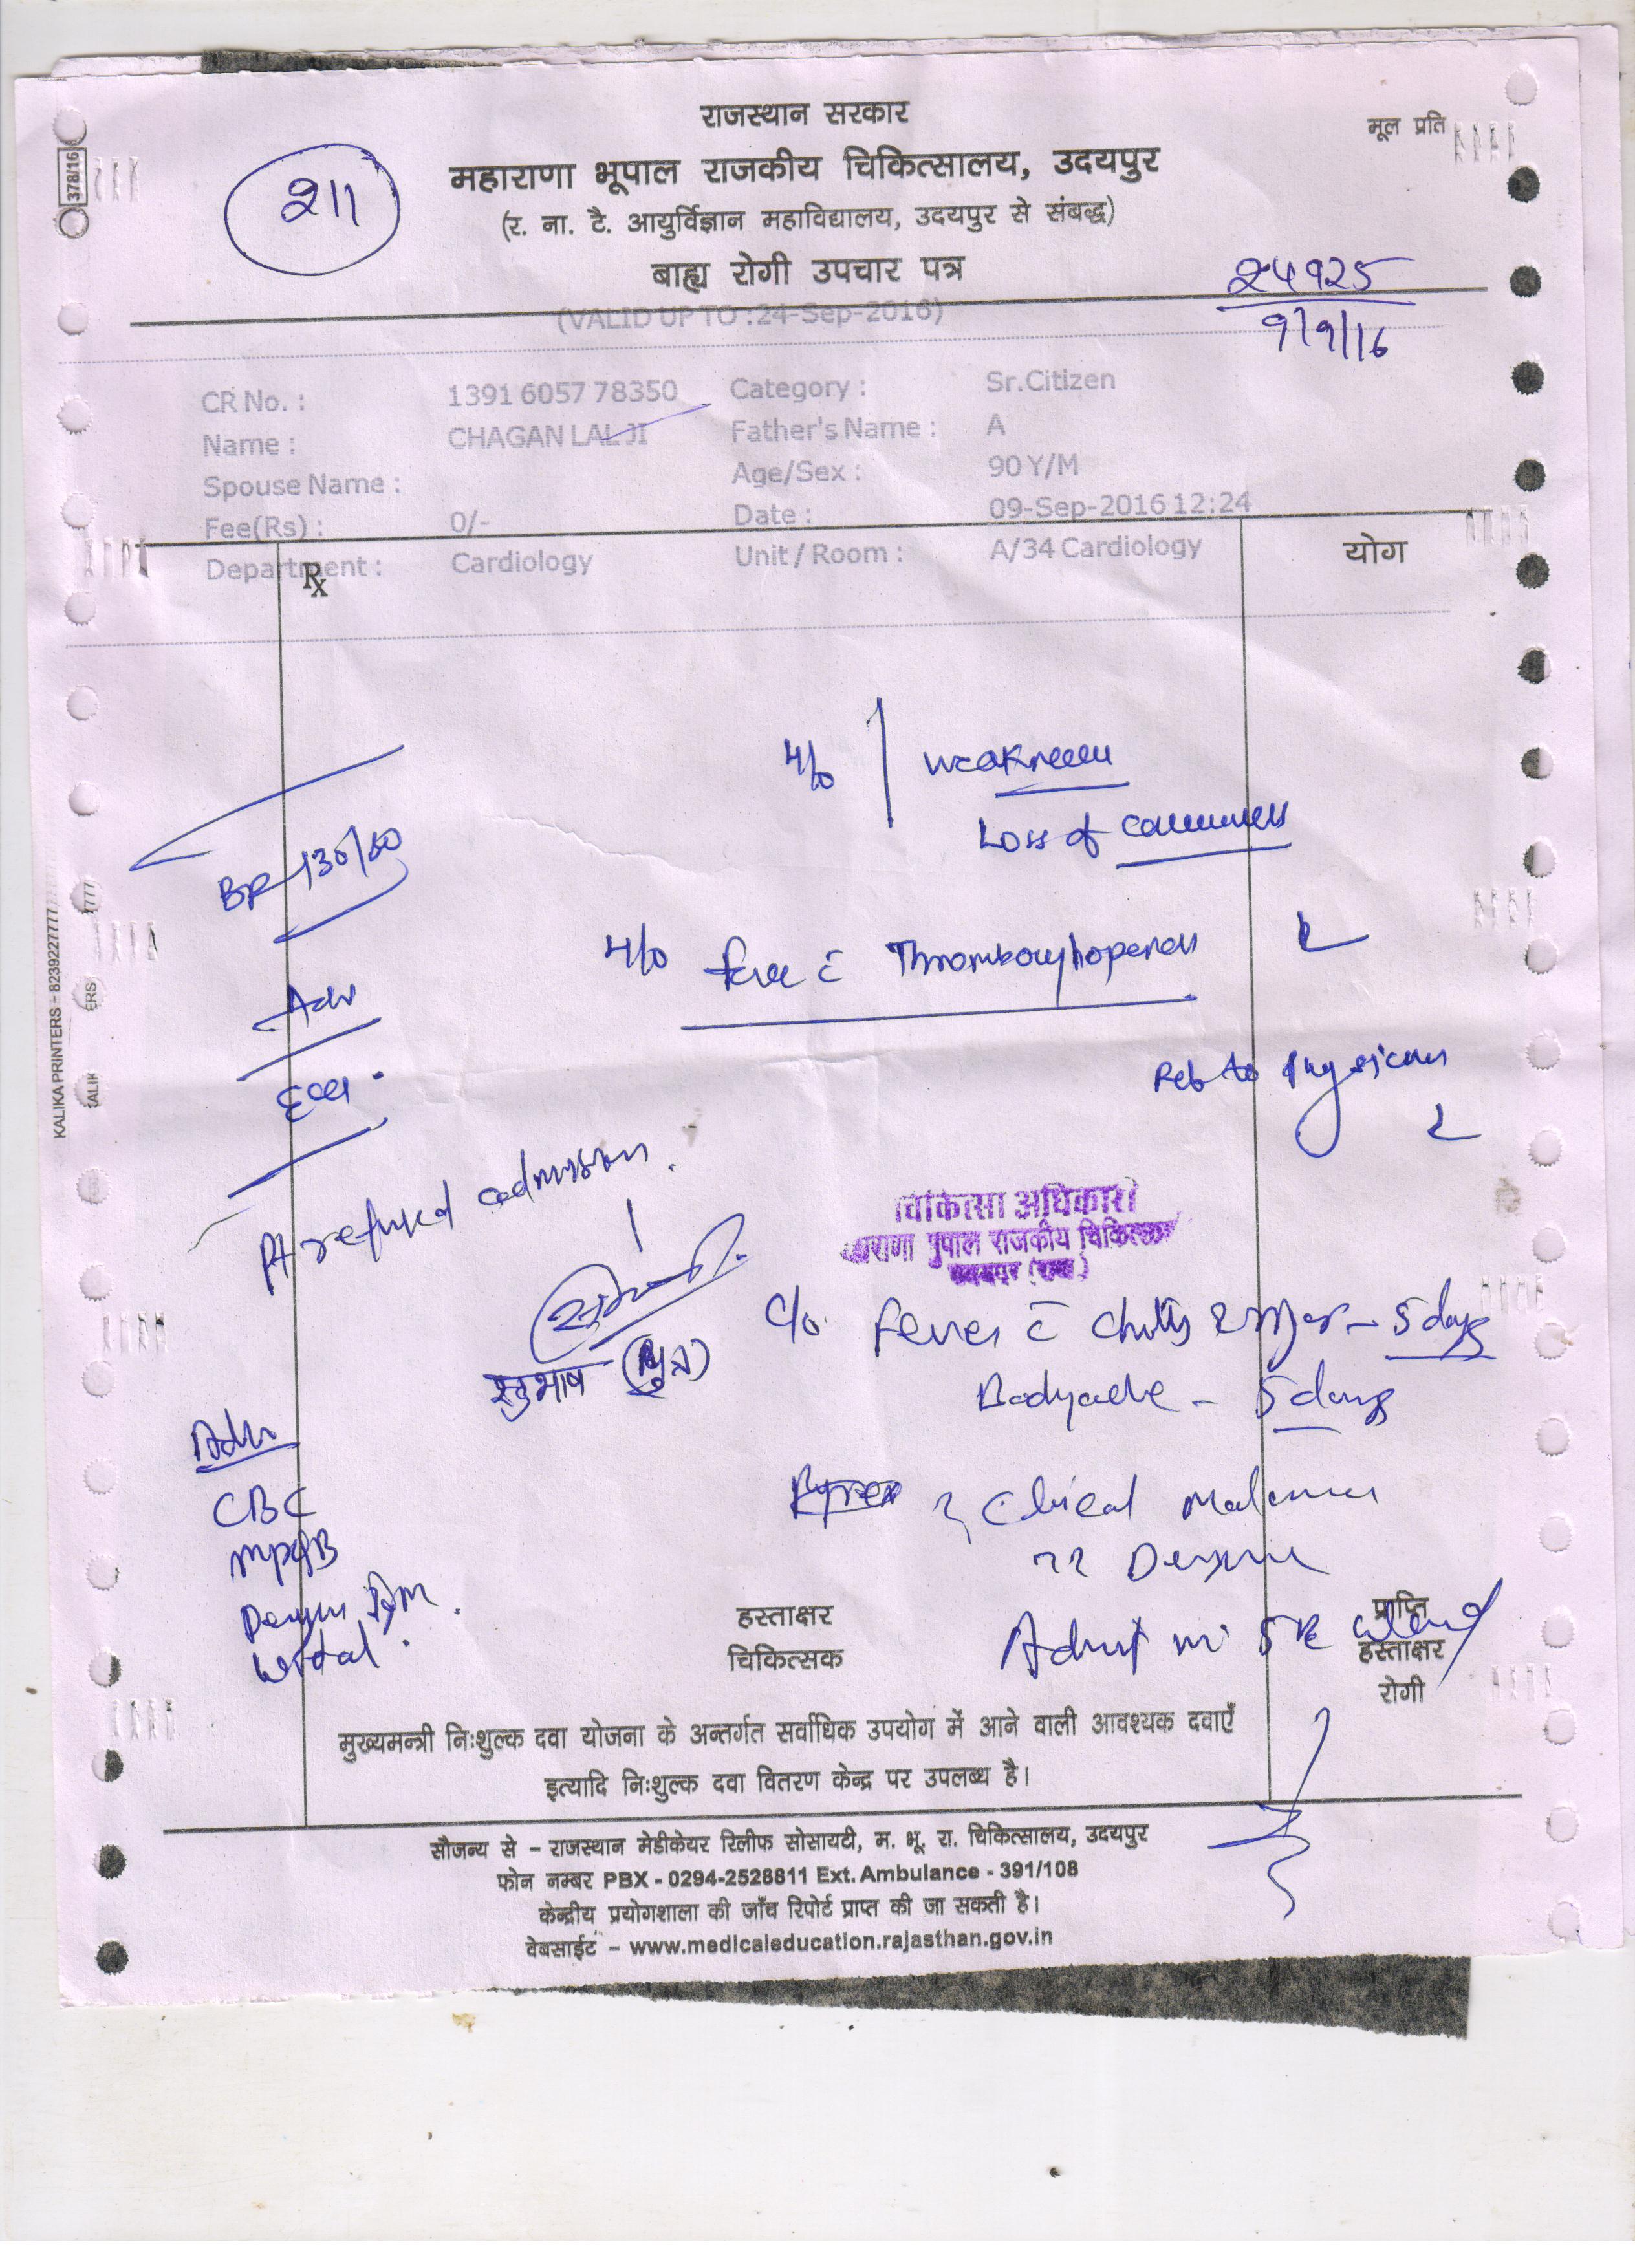 राजस्थान सरकार
मूल प्रति
378/16
211
महाराणा भूपाल राजकीय चिकित्सालय, उदयपुर
(र. ना. टै. आयुर्विज्ञान महाविद्यालय, उदयपुर से संबद्ध)
बाह्य रोगी उपचार पत्र
24925
9/9/16
(VALID UP TO :24-Sep-2016)
CR No. : 1391 6057 78350 Category : Sr.Citizen
Name : CHAGAN LAL JI Father's Name : A
Spouse Name : Age/Sex : 90 Y/M
Fee(Rs) : 0/- Date : 09-Sep-2016 12:24
Department : Cardiology Unit / Room : A/34 Cardiology
Rx
योग
H/o weakness
Loss of
BP
H/o
Thrombocytopenia
Adv
Ref to Physician
KALIKA PRINTERS - 8239227777
Pt refused admission.
चिकित्सा अधिकारी
भूपाल राजकीय चिकित्सालय
सुभाष (पुत्र)
C/o. Fever c̄ chills & - 5 days
Bodyache - 5 days
Adv
CBC
Clinical Malaria
?? Dengue
Dengue
Widal.
Admit
हस्ताक्षर
चिकित्सक
प्राप्ति
हस्ताक्षर
रोगी
मुख्यमन्त्री निःशुल्क दवा योजना के अन्तर्गत सर्वाधिक उपयोग में आने वाली आवश्यक दवाएँ
इत्यादि निःशुल्क दवा वितरण केन्द्र पर उपलब्ध है।
सौजन्य से – राजस्थान मेडीकेयर रिलीफ सोसायटी, म. भू. रा. चिकित्सालय, उदयपुर
फोन नम्बर PBX - 0294-2528811 Ext. Ambulance - 391/108
केन्द्रीय प्रयोगशाला की जाँच रिपोर्ट प्राप्त की जा सकती है।
वेबसाईट – www.medicaleducation.rajasthan.gov.in